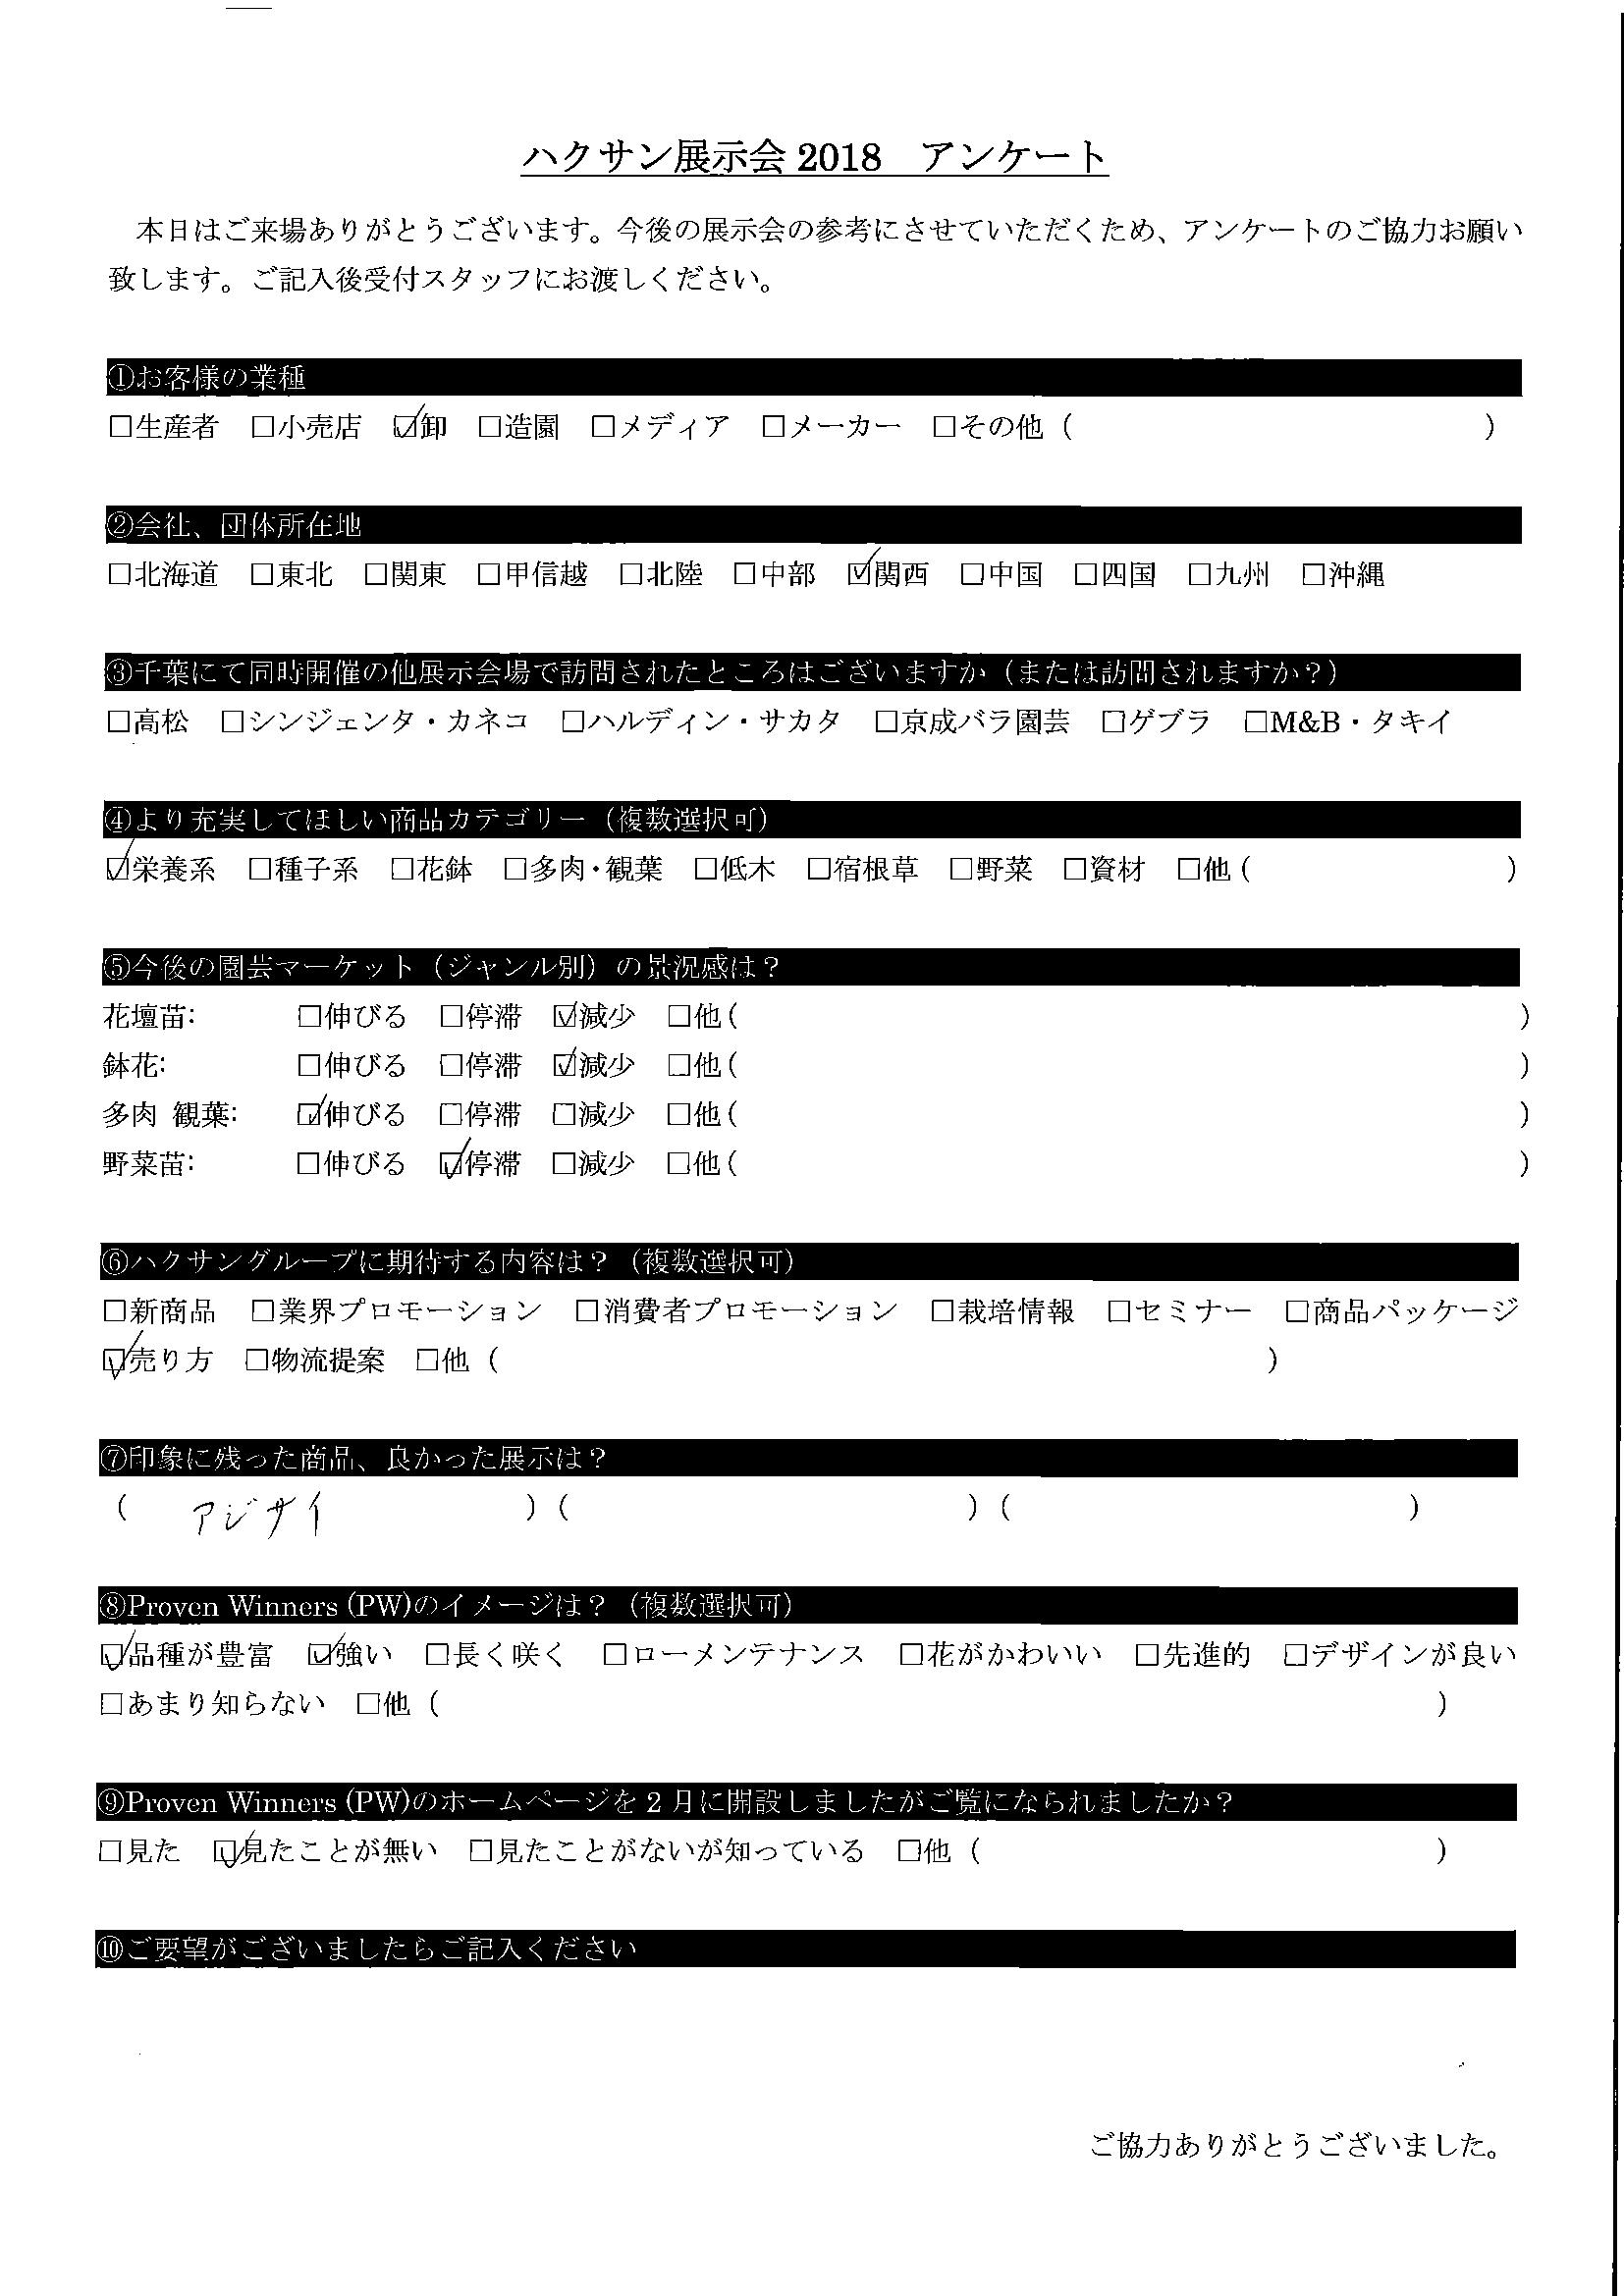 ハクサン展示会 2018　アンケート
本日はご来場ありがとうございます。今後の展示会の参考にさせていただくため、アンケートのご協力お願い
致します。ご記入後受付スタッフにお渡しください。
①お客様の業種
□生産者　□小売店　☑卸　□造園　□メディア　□メーカー　□その他（　）
②会社、団体所在地
□北海道　□東北　□関東　□甲信越　□北陸　□中部　☑関西　□中国　□四国　□九州　□沖縄
③千葉にて同時開催の他展示会場で訪問されたところはございますか（または訪問されますか？）
□高松　□シンジェンタ・カネコ　□ハルディン・サカタ　□京成バラ園芸　□ゲブラ　□M&B・タキイ
④より充実してほしい商品カテゴリー（複数選択可）
☑栄養系　□種子系　□花鉢　□多肉・観葉　□低木　□宿根草　□野菜　□資材　□他（　）
⑤今後の園芸マーケット（ジャンル別）の景況感は？
花壇苗:　□伸びる　□停滞　☑減少　□他（　）
鉢花:　□伸びる　□停滞　☑減少　□他（　）
多肉 観葉:　☑伸びる　□停滞　□減少　□他（　）
野菜苗:　□伸びる　☑停滞　□減少　□他（　）
⑥ハクサングループに期待する内容は？（複数選択可）
□新商品　□業界プロモーション　□消費者プロモーション　□栽培情報　□セミナー　□商品パッケージ
☑売り方　□物流提案　□他（　）
⑦印象に残った商品、良かった展示は？
（　アジサイ　）（　）（　）
⑧Proven Winners (PW)のイメージは？（複数選択可）
☑品種が豊富　☑強い　□長く咲く　□ローメンテナンス　□花がかわいい　□先進的　□デザインが良い
□あまり知らない　□他（　）
⑨Proven Winners (PW)のホームページを 2 月に開設しましたがご覧になられましたか？
□見た　☑見たことが無い　□見たことがないが知っている　□他（　）
⑩ご要望がございましたらご記入ください
ご協力ありがとうございました。